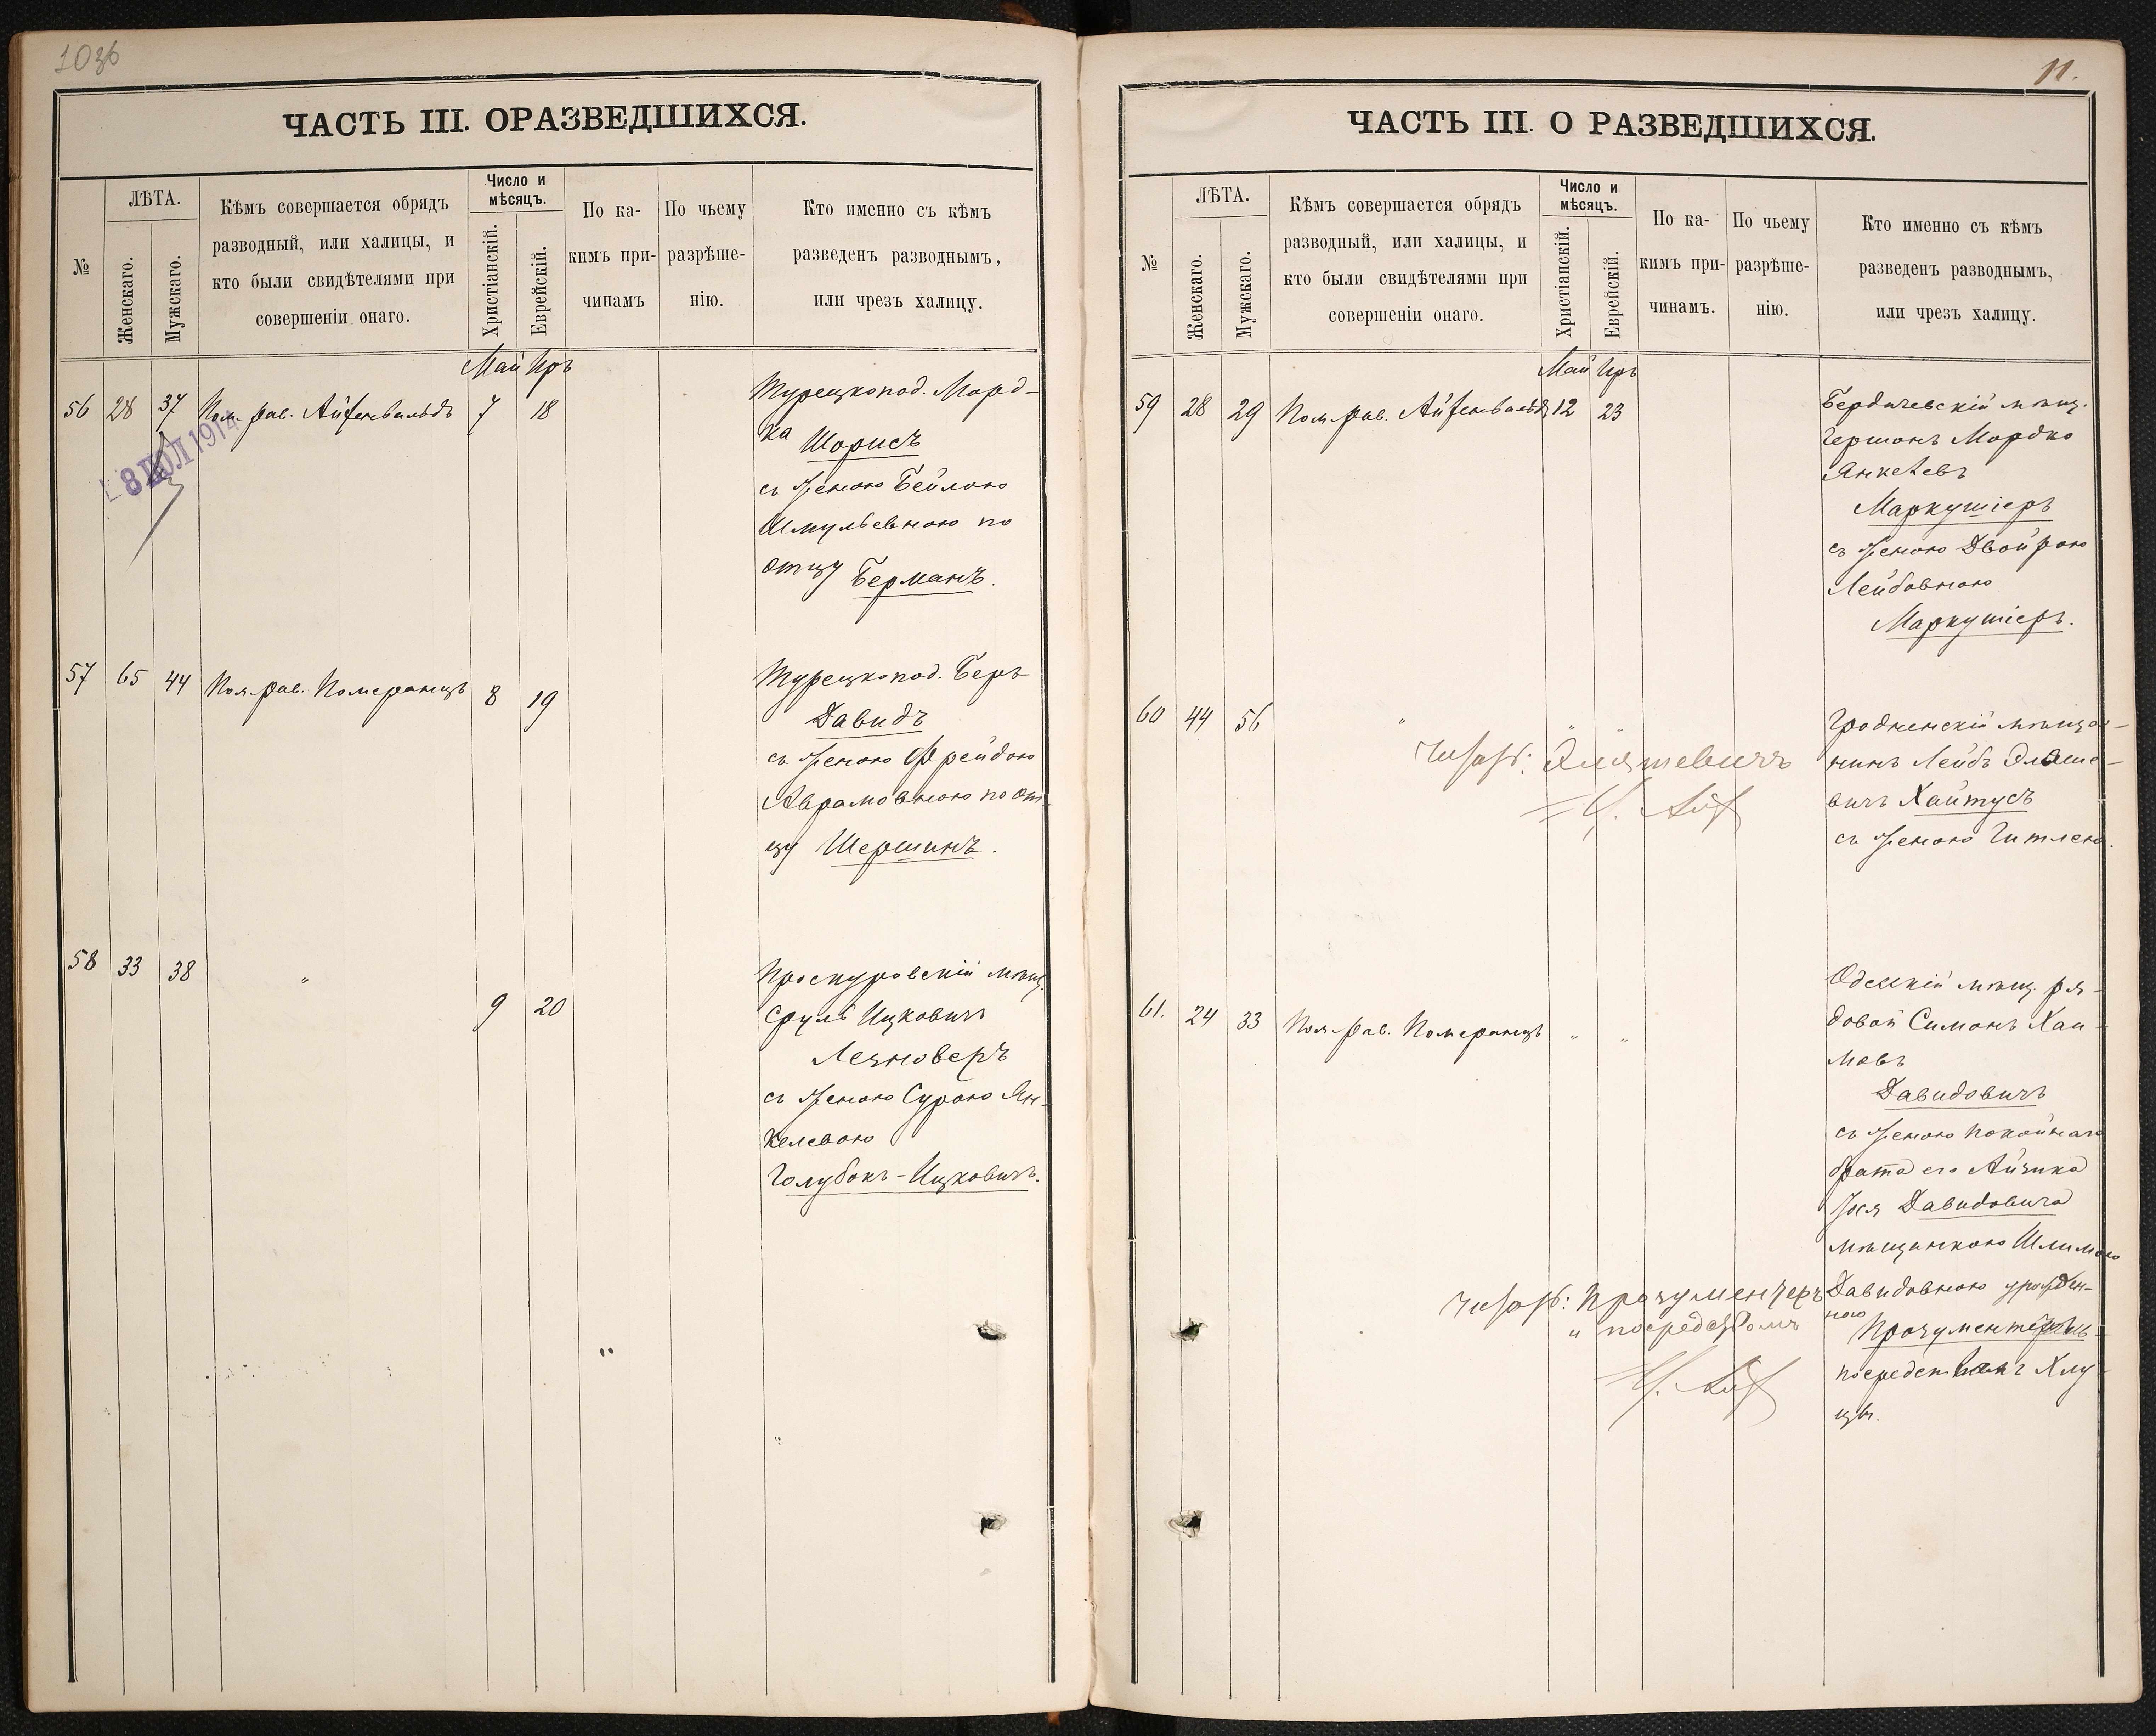 1036
ЧАСТЬ III. ОРАЗВЕДШИХСЯ.
№
ЛѢТА.
Женскаго.
Мужскаго.
Кѣмъ совершается обрядъ
разводный, или халицы, и
кто были свидѣтелями при
совершеніи онаго.
Число и
мѣсяцъ.
Христіанскій.
Еврейскій.
По ка-
кимъ при-
чинамъ
По чьему
разрѣше-
нію.
Кто именно съ кѣмъ
разведенъ разводнымъ,
или чрезъ халицу.
Май Иръ
56 28 37 Пом. рав. Айзенвальдъ 7 18
8 ІЮЛ 1914
Турецкопод. Морд-
ка Шорисъ
съ женою Бейлою
Шмульевною по
отцу Берманъ.
57 65 44 Пом. рав. Померанцъ 8 19
Турецкопод. Беръ
Давидъ
съ женою Фрейдою
Аврамовною по от-
цу Шершинъ.
58 33 38 " 9 20
Проскуровскій мѣщ.
Сруль Ицковичъ
Лезноверъ
съ женою Сурою Ян-
келевою
Голубокъ-Ицковичъ.
11.
ЧАСТЬ III. О РАЗВЕДШИХСЯ.
№
ЛѢТА.
Женскаго.
Мужскаго.
Кѣмъ совершается обрядъ
разводный, или халицы, и
кто были свидѣтелями при
совершеніи онаго.
Число и
мѣсяцъ.
Христіанскій.
Еврейскій.
По ка-
кимъ при-
чинамъ.
По чьему
разрѣше-
нію.
Кто именно съ кѣмъ
разведенъ разводнымъ,
или чрезъ халицу.
Май Иръ
59 28 29 Пом. рав. Айзенвальдъ 12 23
Бердичевскій мѣщ.
Гершонъ Мордко
Янкелевъ
Маркушіеръ
съ женою Двойрою
Лейбовною
Маркушіеръ.
60 44 56 " "
Читать: Эліяшевичъ
Гродненскій мѣща-
нинъ Лейбъ Эліяше-
вичъ Хаитусъ
съ женою Гитлею.
61. 24 33 Пом. рав. Померанцъ " "
Одесскій мѣщ. ря-
довой Симонъ Хаи-
мовъ
Давидовичъ
съ женою покойнаго
брата его Айзика
Іося Давидовича
мѣщанкою Шлимою
Давидовною урожден-
ною
Прозументеръ
посредствомъ Хлу-
цы.
Читать: Прозументеръ
и посредствомъ